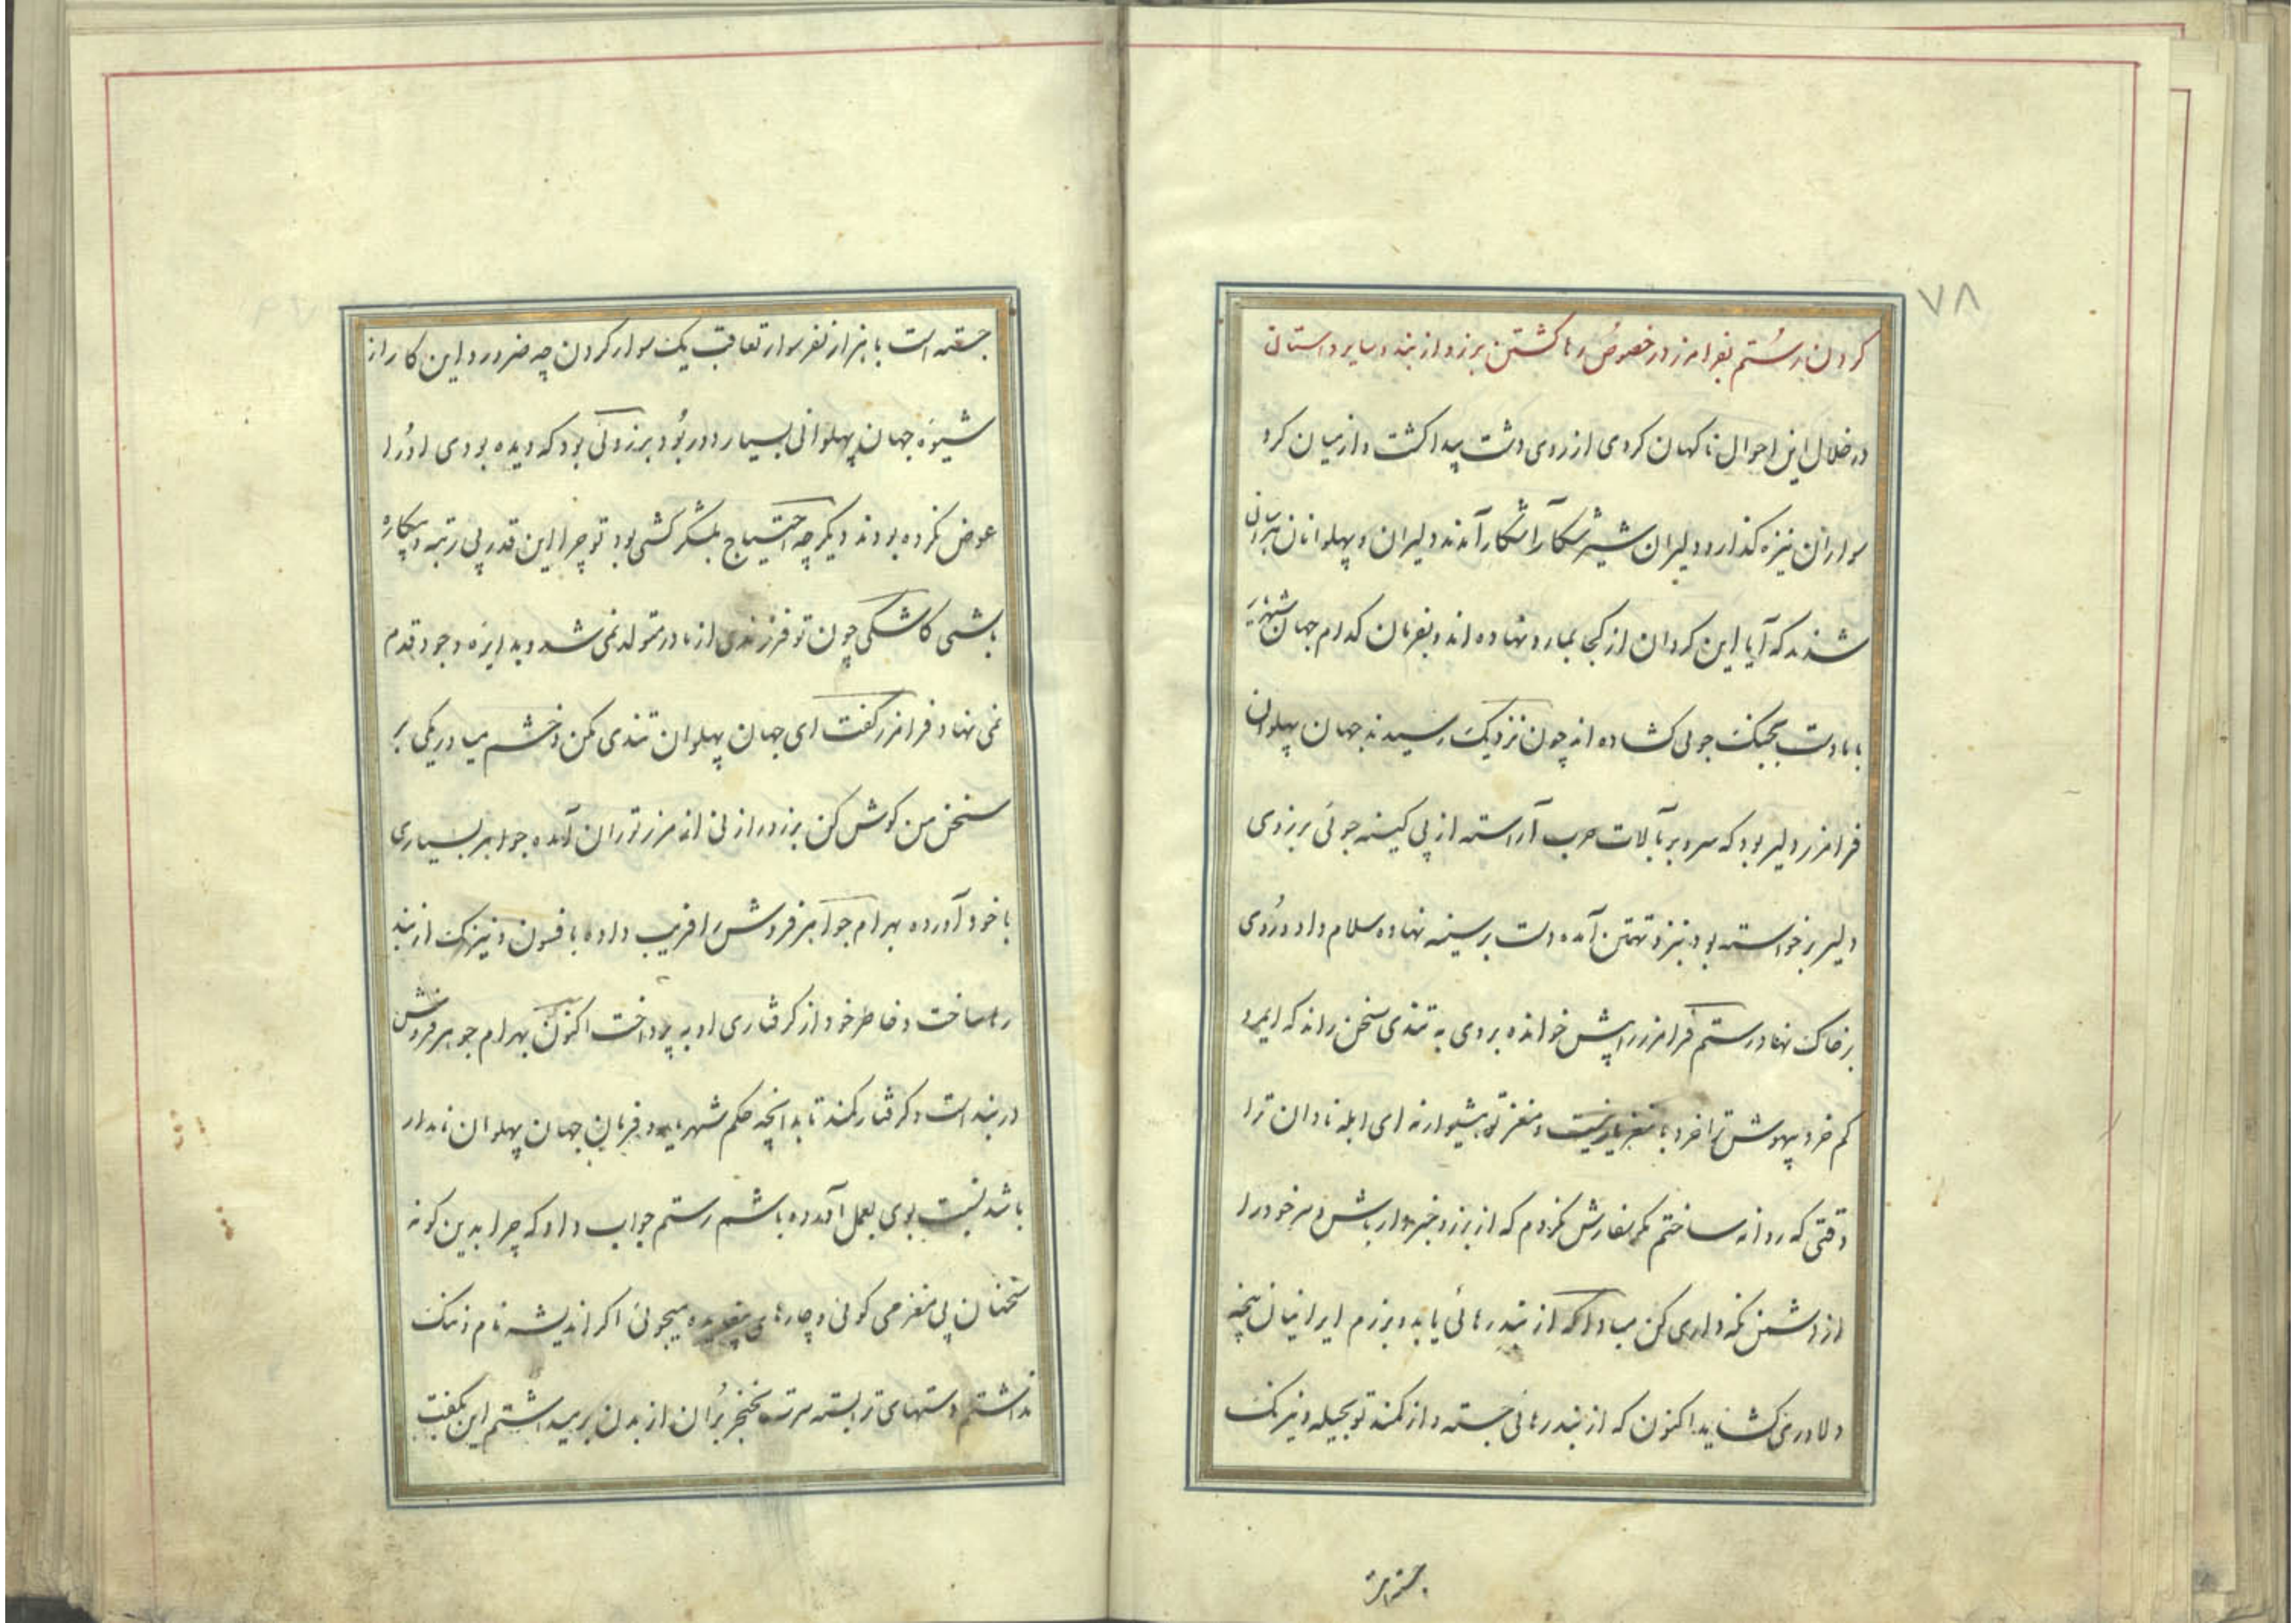 ۷۸
کردن رستم بفرامرز در خصوص رها کشتن برزو از بند و سایر داستان
در خلال این احوال ناکهان کردی از روی دشت پیدا کشت و از میان کرد
سواران نیزه کذار و دلیران شیر شکار آشکار آمدند دلیران و پهلوانان
شدند که آیا این کردان از کجا بما رو نهاده اند و بفرمان کدام جهان
با ما دست بجنک جوئی کشاده اند چون نزدیک رسیدند جهان پهلوان
فرامرز دلیر بود که سر و بر بآلات حرب آراسته از پی کینه جوئی برزوی
دلیر برخواسته بود بنزد تهمتن آمده دست بر سینه نهاده سلام داد و روی
بر خاک نهاد رستم فرامرز را پیش خوانده بروی به تندی سخن راند که ای مرد
کم خرد بیهوش ترا خرد با مغز یار نیست و مغز تو هشیوار نه ای ابله نادان ترا
وقتی که روانه ساختم مکر سفارش نکردم که از برزو خبردار باش و سر خود را
از دشمن نکه داری کن مبادا که از بند رهائی یابد و برزم ایرانیان پنجه
دلاوری کشاید اکنون که از بند رهائی جسته و از کمند تو بحیله و نیرنک
جسته است
جسته است با هزار نفر سوار تعاقب یک سوار کردن چه ضرور و این کار از
شیوه جهان پهلوانی بسیار دور بود برزو کی بود که دیده بودی او را
عوض نکرده بودند دیکر چه احتیاج بلشکر کشی بود تو چرا این قدر بی رتبه و بیکاره
باشی کاشکی چون تو فرزندی از مادر متولد نمی شد و بدایره وجود قدم
نمی نهاد فرامرز کفت ای جهان پهلوان تندی مکن و خشم میاور یکی بر
سخن من کوش کن برزو را زنی از مرز توران آمده جواهر بسیاری
با خود آورده بهرام جواهر فروش را فریب داده با فسون و نیرنک از بند
رها ساخت و خاطر خود از کرفتاری او به پرداخت اکنون بهرام جوهر فروش
در بند است و کرفتار کمند تا بدانچه حکم شهریار و فرمان جهان پهلوان نامدار
باشد نسبت بوی بعمل آورده باشم رستم جواب داد که چرا بدین کونه
سخنان بی مغز می کوئی و چارهای بیفایده میجوئی اکر اندیشه نام و ننک
نداشتم دستهای ترا بسته سرت بخنجر بران از بدن بریده داشتم این بکفت